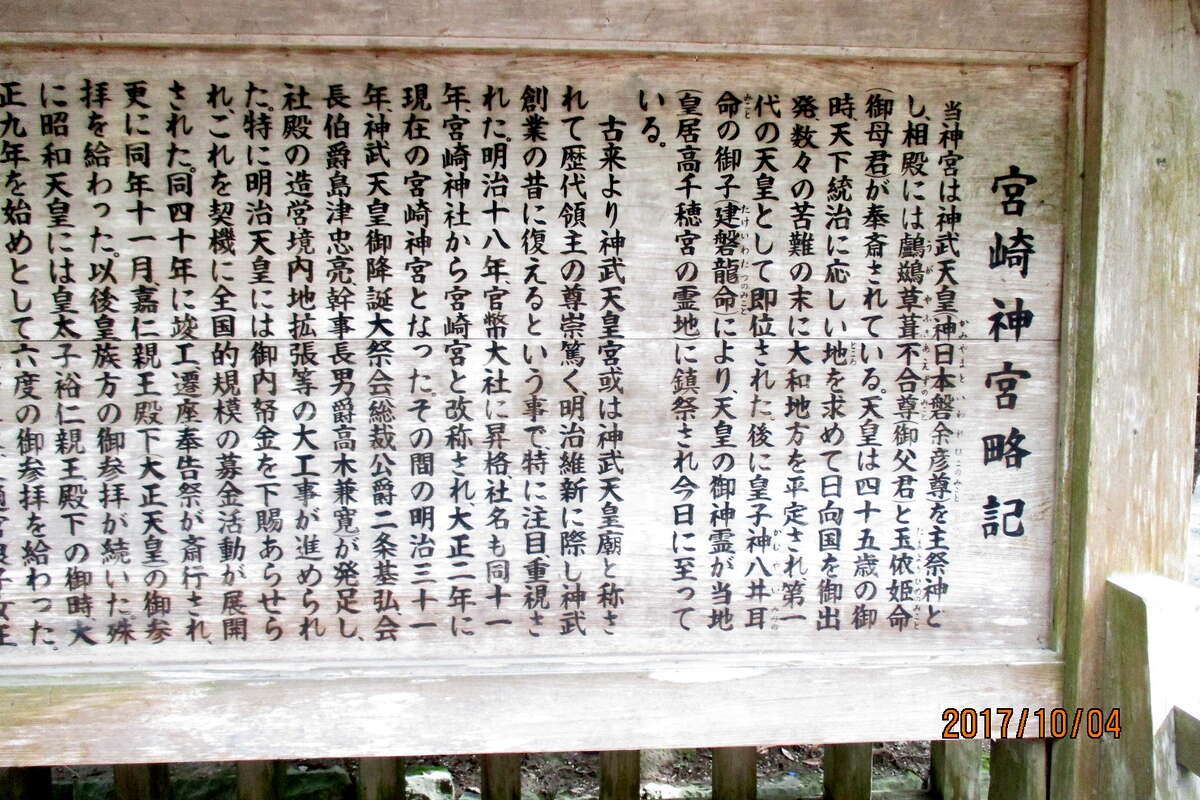 宮崎神宮略記
当神宮は神武天皇(神日本磐余彦尊)を主祭神と
し、相殿には鸕鷀草葺不合尊(御父君)と玉依姫命
(御母君)が奉斎されている。天皇は四十五歳の御
時、天下統治に応しい地を求めて日向国を御出
発、数々の苦難の末に大和地方を平定され第一
代の天皇として即位された。後に皇子神八井耳
命の御子(建磐龍命)により、天皇の御神霊が当地
(皇居高千穂宮の霊地)に鎮祭され今日に至って
いる。
古来より神武天皇宮或は神武天皇廟と称さ
れて歴代領主の尊崇篤く、明治維新に際し神武
創業の昔に復えるという事で、特に注目、重視さ
れた。明治十八年、官幣大社に昇格、社名も同十一
年、宮崎神社から宮崎宮と改称され大正二年に
現在の宮崎神宮となった。その間の明治三十一
年、神武天皇御降誕大祭会総裁公爵二条基弘、会
長伯爵島津忠亮、幹事長男爵高木兼寛)が発足し、
社殿の造営境内地拡張等の大工事が進められ
た。特に明治天皇には御内帑金を下賜あらせら
れ、これを契機に全国的規模の募金活動が展開
された。同四十年に竣工、遷座奉告祭が斎行され、
更に同年十一月、嘉仁親王殿下(大正天皇)の御参
拝を給わった。以後皇族方の御参拝が続いた。殊
に昭和天皇には、皇太子裕仁親王殿下の御時、大
正九年を始めとして六度の御参拝を給わった。
2017/10/04